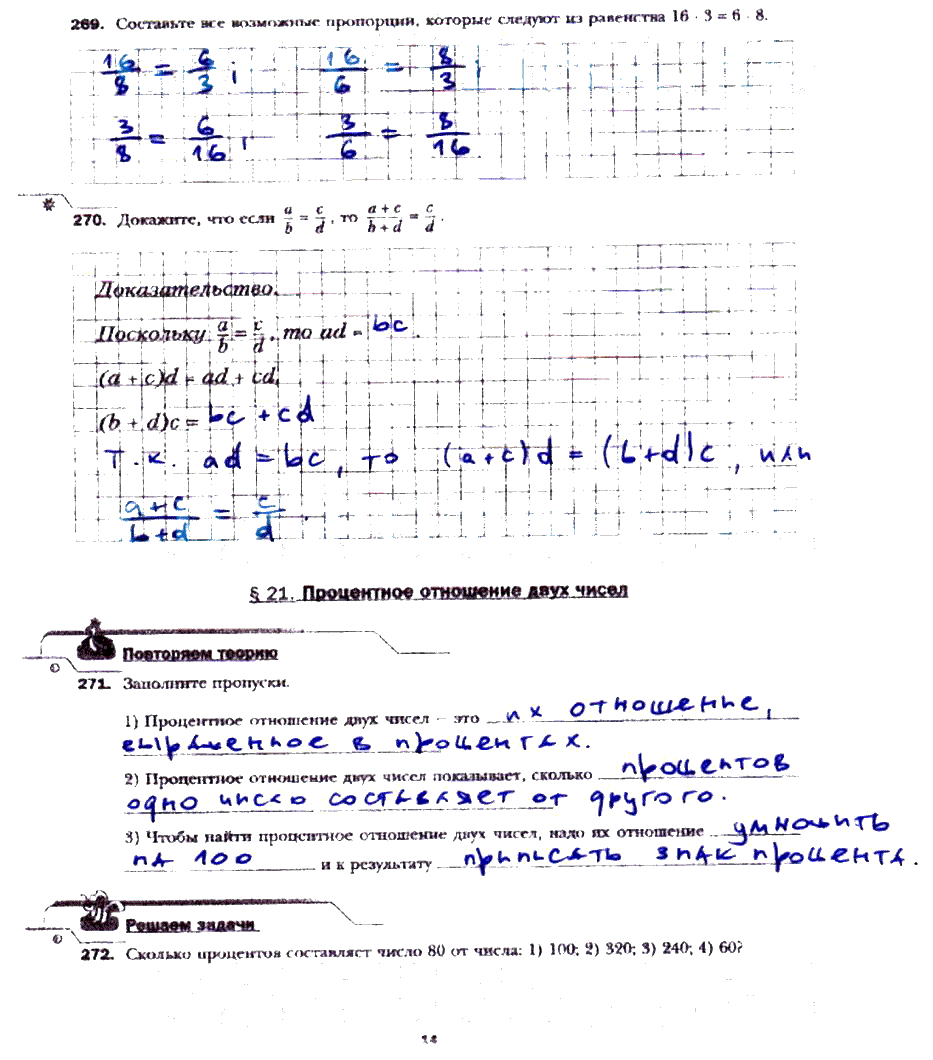 269. Составьте все возможные пропорции, которые следуют из равенства 16 · 3 = 6 · 8.
16/8 = 6/3; 16/6 = 8/3;
3/8 = 6/16; 3/6 = 8/16
270. Докажите, что если a/b = c/d, то (a + c)/(b + d) = c/d.
Доказательство.
Поскольку a/b = c/d, то ad = bc.
(a + c)d = ad + cd,
(b + d)c = bc + cd
Т.к. ad = bc, то (a+c)d = (b+d)c, или
(a+c)/(b+d) = c/d.
§ 21. Процентное отношение двух чисел
Повторяем теорию
271. Заполните пропуски.
1) Процентное отношение двух чисел – это их отношение,
выраженное в процентах.
2) Процентное отношение двух чисел показывает, сколько процентов
одно число составляет от другого.
3) Чтобы найти процентное отношение двух чисел, надо их отношение умножить
на 100 и к результату приписать знак процента.
Решаем задачи
272. Сколько процентов составляет число 80 от числа: 1) 100; 2) 320; 3) 240; 4) 60?